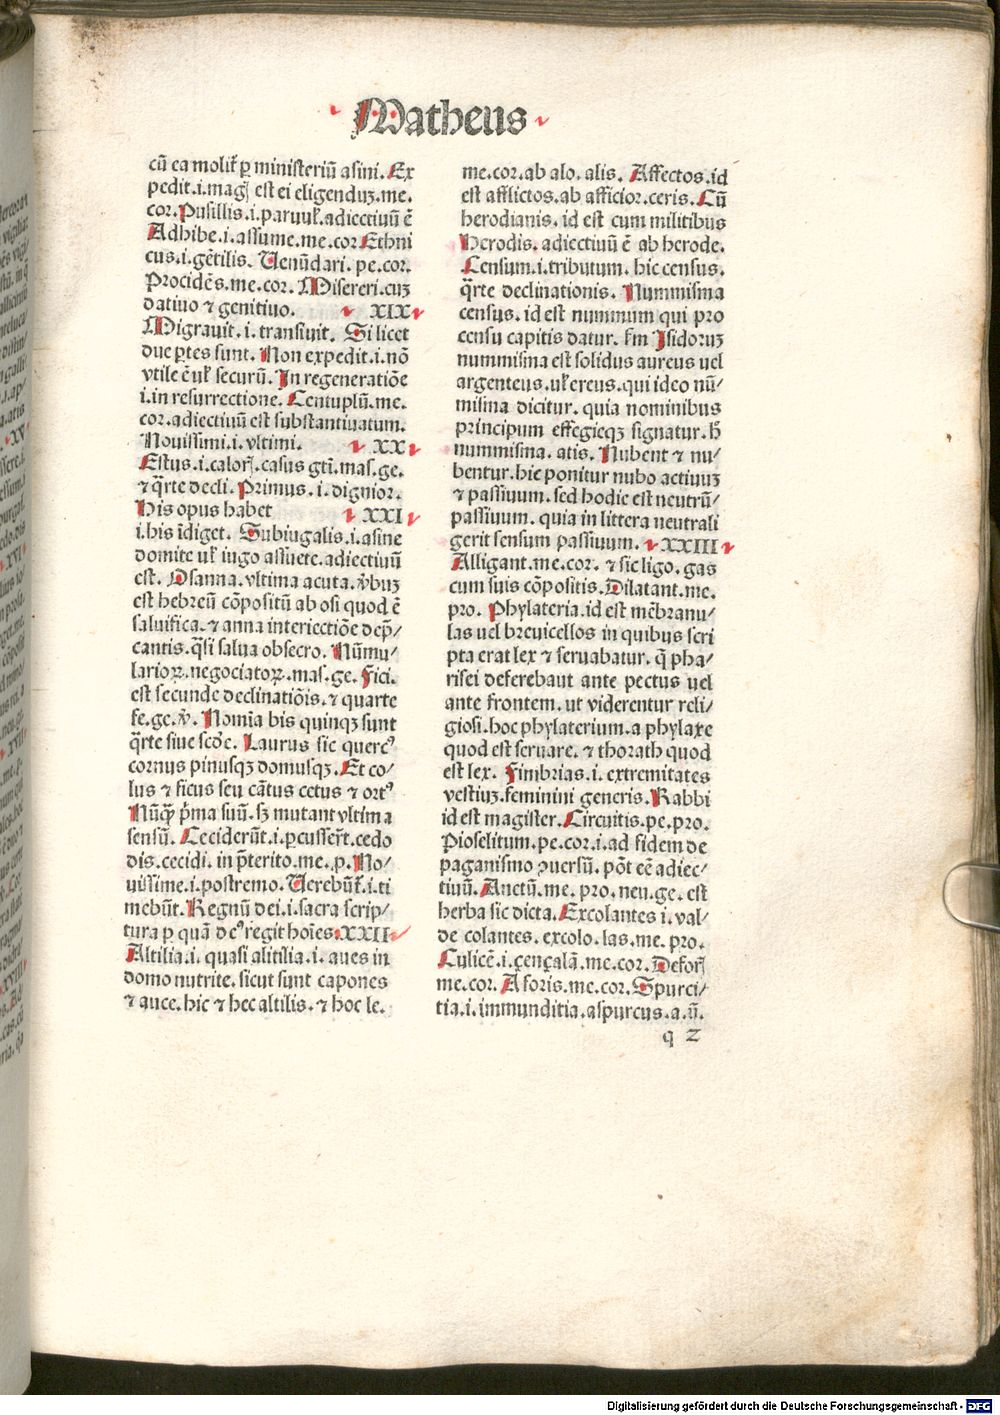 Matheus
cū ea molit᷑ ꝑ ministeriū asini. Ex
pedit .i. magꝭ est ei eligenduꝫ. me.
cor. Pusillis .i. paruul᷑. adiectiuū ē
Adhibe .i. assume. me. cor Ethni
cus .i. gētilis. Uenūdari. pe. cor.
Procidēs. me. cor. Misereri. cuꝫ
datiuo ⁊ genitiuo. XIX
Migrauit .i. transiuit. Si licet
due ꝑtes sunt. Non expedit .i. nō
vtile ē ul᷑ securū. In regeneratiōe
.i. in resurrectione. Centuplū. me.
cor. adiectiuū est substantiuatum.
Nouissimi .i. vltimi. XX
Estus .i. calorꝭ. casus gtī. mas. ge.
⁊ q̄rte decli. Primus .i. dignior.
His opus habet XXI
.i. his īdiget. Subiugalis .i. asine
domite ul᷑ iugo assuete. adiectiuū
est. Osanna. vltima acuta. v̄buꝫ
est hebreū cōpositū ab osi quod ē
saluifica. ⁊ anna interiectiōe dep̄/
cantis. q̄si salua obsecro. Nūmu/
larioꝝ. negociatoꝝ. mas. ge. Fici.
est secunde declinatiōis. ⁊ quarte
fe. ge. v̄. Nomīa bis quinqꝫ sunt
q̄rte siue scd̄e. Laurus sic querc᷒
cornus pinusqꝫ domusqꝫ. Et co/
lus ⁊ ficus seu cātus cetus ⁊ ort᷒
Nūq̄ꝫ p̄ma suū. sꝫ mutant vltima
sensū. Ceciderūt .i. ꝑcusserūt. cedo
dis. cecidi. in p̄terito. me. ꝓ. No/
uissime .i. postremo. Uerebūt᷑ .i. ti
mebūt. Regnū dei .i. sacra scrip/
tura ꝑ quā de᷒ regit hoīes XXII
Altilia .i. quasi alitilia .i. aues in
domo nutrite. sicut sunt capones
⁊ auce. hic ⁊ hec altilis. ⁊ hoc le.
me. cor. ab alo. alis. Affectos. id
est afflictos. ab afficior. ceris. Cū
herodianis. id est cum militibus
Herodis. adiectiuū ē ab herode.
Censum .i. tributum. hic census.
q̄rte declinationis. Nummisma
census. id est nummum qui pro
censu capitis datur. scd̄m Isidoruꝫ
nummisma est solidus aureus uel
argenteus. ul᷑ ereus. qui ideo nū/
misma dicitur. quia nominibus
principum effegieqꝫ signatur. h̄
nummisma. atis. Nubent ⁊ nu/
bentur. hic ponitur nubo actiuuꝫ
⁊ passiuum. sed hodie est neutrū/
passiuum. quia in littera neutrali
gerit sensum passiuum. XXIII
Alligant. me. cor. ⁊ sic ligo. gas
cum suis cōpositis. Dilatant. me.
pro. Phylateria. id est mēbranu/
las uel breuicellos in quibus scri
pta erat lex ⁊ seruabatur. q̄ pha/
risei deferebant ante pectus uel
ante frontem. ut viderentur reli/
giosi. hoc phylaterium. a phylaxe
quod est seruare. ⁊ thorath quod
est lex. Fimbrias .i. extremitates
vestiuꝫ. feminini generis. Rabbi
id est magister. Circuitis. pe. pro.
Pioselitum. pe. cor. .i. ad fidem de
paganismo ꝯuersū. pōt eē adiec/
tiuū. Anetū. me. pro. neu. ge. est
herba sic dicta. Excolantes .i. val/
de colantes. excolo. las. me. pro.
Culicē .i. çençalā. me. cor. Deforꝭ
me. cor. A foris. me. cor. Spurci/
tia .i. immunditia. a spurcus. a. ū.
q 2
Digitalisierung gefördert durch die Deutsche Forschungsgemeinschaft - DFG